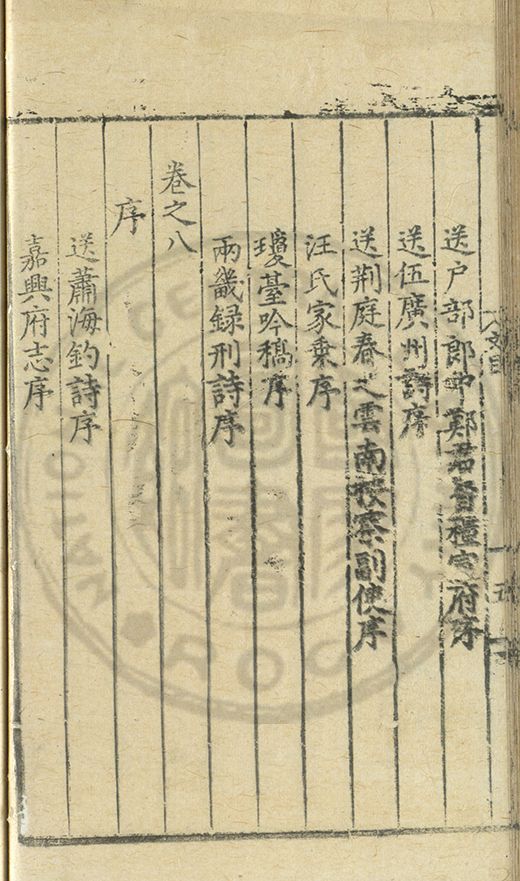 送户部郎中鄭君督糧宣府序
送伍廣州詩序
送荆庭春之雲南按察副使序
汪氏家乗序
瓊臺吟稿序
兩畿録刑詩序
卷之八
序
送蕭海釣詩序
嘉興府志序